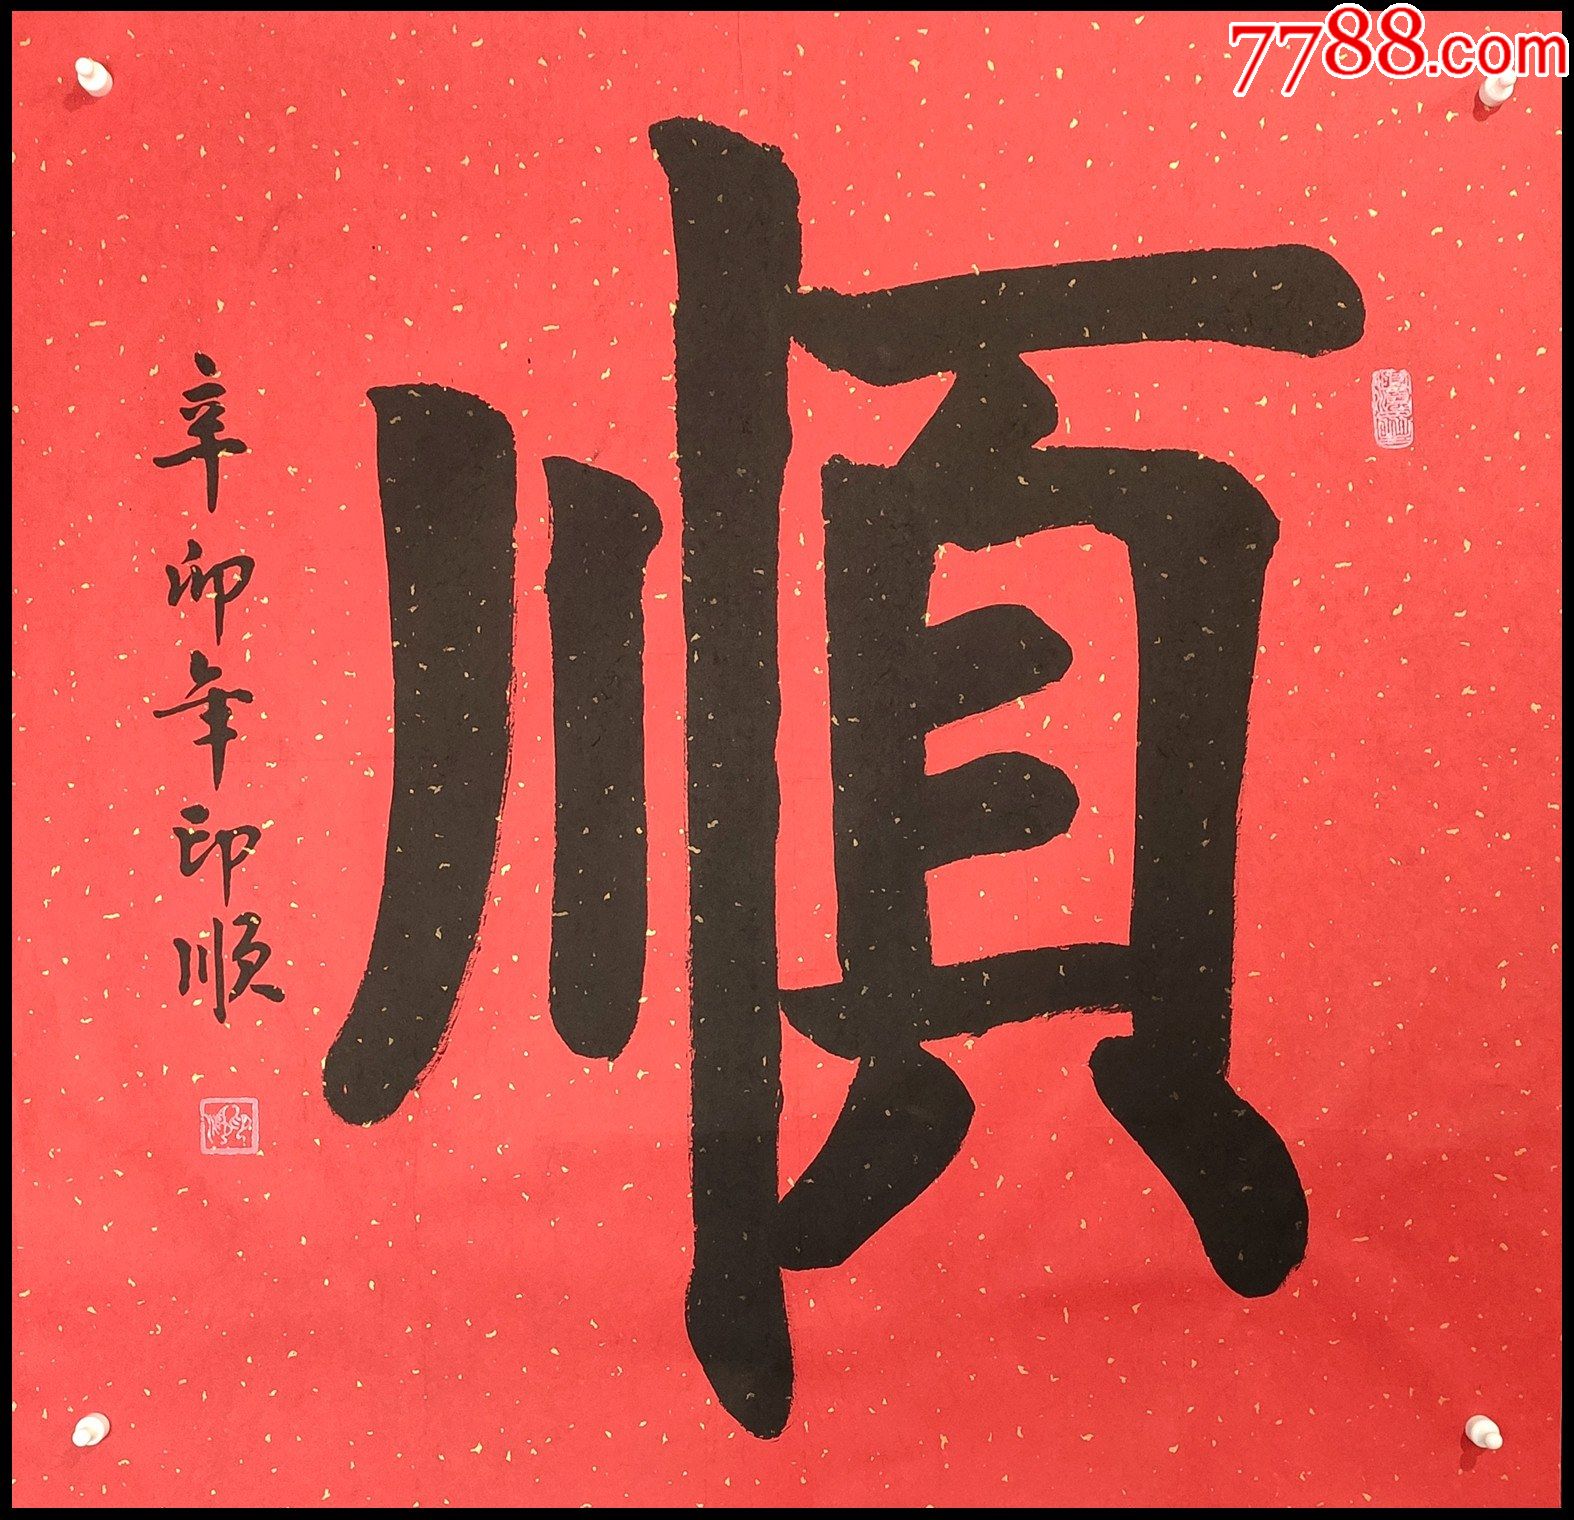 7788.com
順
辛卯年印顺